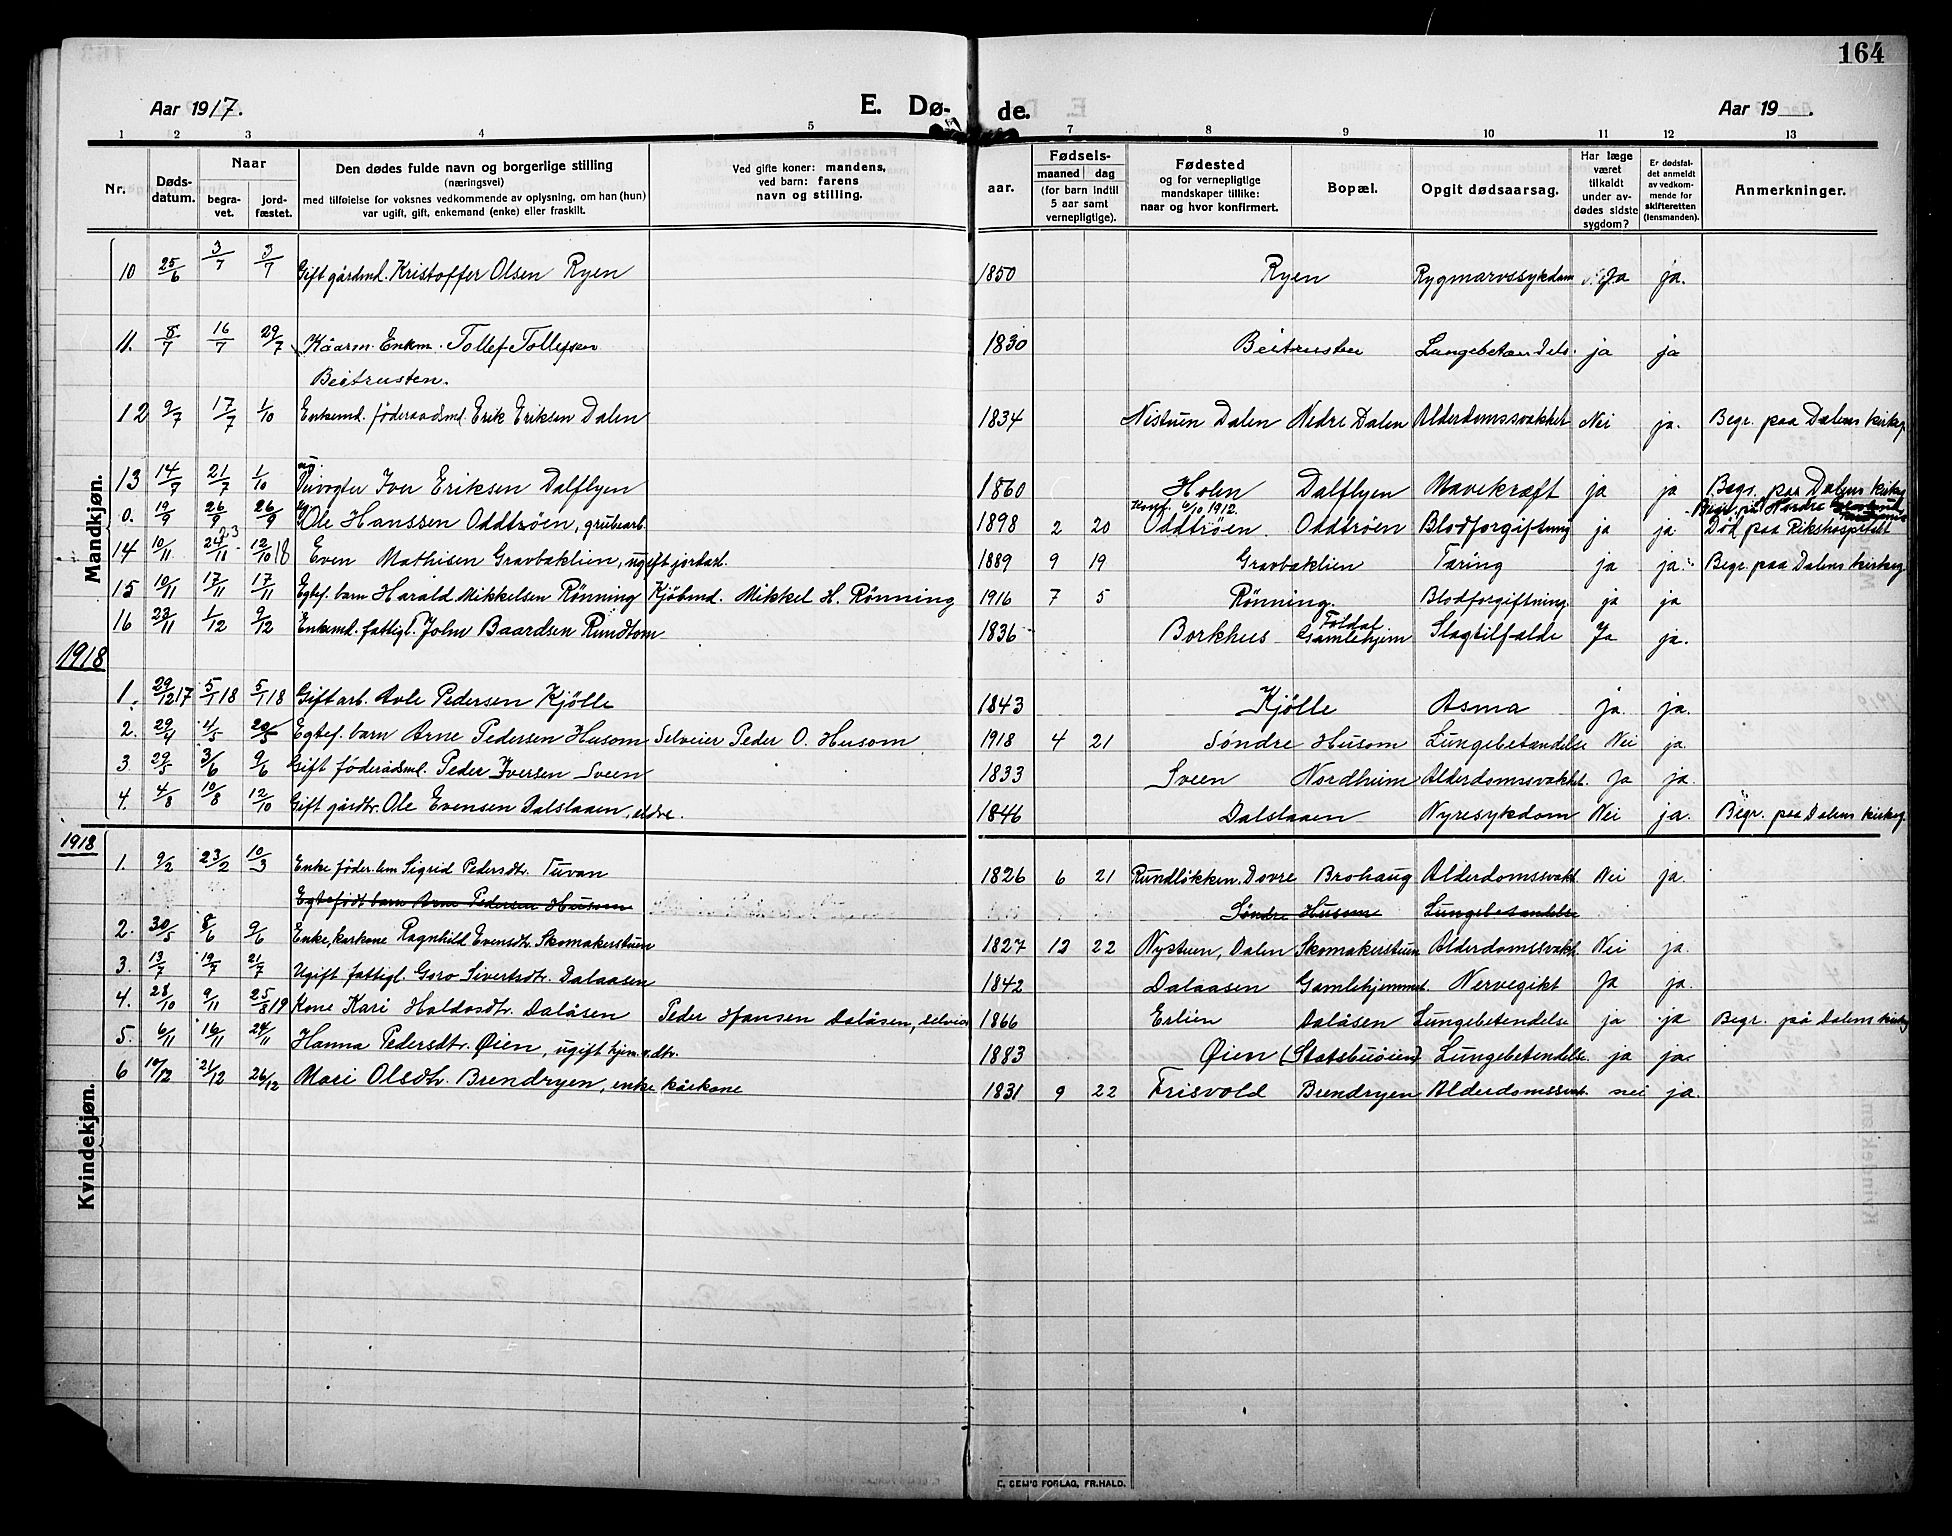 164
Aar 1917. E. Dø- de. Aar 19 .
1 2 3 4 5 7 8 9 10 11 12 13
Nr. Døds-datum. Naar begra-vet. jord-fæstet. Den dødes fulde navn og borgerlige stilling (næringsvei) med tilføielse for voksnes vedkommende av oplysning, om han (hun) var ugift, gift, enkemand (enke) eller fraskilt. Ved gifte koner: mandens, ved barn: farens navn og stilling. aar. Fødsels- maaned dag (for barn indtil 5 aar samt vernepligtige). Fødested og for vernepligtige mandskaper tillike: naar og hvor konfirmert. Bopæl. Opgit dødsaarsag. Har læge været tilkaldt under av-dødes sidste sygdom? Er dødsfal-det anmeldt av vedkom-mende for skifteretten (lensmanden). Anmerkninger.
Mandkjøn.
10 25/6 3/7 3/7 Gift gårdmd. Kristoffer Olsen Ryen 1850 Ryen Rygmarvssykdom Ja ja.
11. 8/7 16/7 29/7 Kåarm. Enkm. Tollef Tollefsen 1830 Beitrusten Lungebetændels. ja ja
Beitrusten.
12 9/7 17/7 1/10 Enkemd. föderaadsmd. Erik Eriksen Dalen 1834 Nistuen Dalen Nedre Dalen Alderdomssvakhet Nei ja. Begr. paa Dalens kirkeg
13 14/7 21/7 1/10 ug. Dyrvogter Iver Eriksen Dalflyen 1860 Holen Dalflyen Mavekræft ja ja Begr. paa Dalens kirkeg
Konf. 6/10 1912. Begr. på Nordre
0. 19/9 26/9 26/9 Ole Hanssen Oddtröen, grubearb. 1898 2 20 Oddtröen. Oddtröen Blodforgiftning ja ja Död paa Rikshospitalet
14 10/11 24/11 12/10 18 Even Mathisen Gravbaklien, ugift jordarb. 1889 9 19 Gravbaklien Tæring ja ja. Begr. paa Dalens kirkeg
15 10/11 17/11 17/11 Egtef. barn Harald Mikkelsen Rönning Kjöbmd. Mikkel H. Rönning 1916 7 5 Rönning. Blodforgiftning. ja ja
16 23/11 1/12 9/12 Enkemd. fattigl. John Baardsen Rundtom 1836 Borkhus Foldal Gamlehjem Slagtilfælde Ja ja.
1918
1. 29/12 17 5/1 18 5/1 18 Gift arb. Avle Pedersen Kjölle 1843 Kjölle Asma ja. ja.
2. 29/4 4/5 20/5 Egtef. barn Arne Pedersen Husom Selveier Peder O. Husom 1918 4 21 Söndre Husom Lungebetændelse Nei ja.
3. 29/5 3/6 9/6 Gift föderådsmd. Peder Iversen Sveen 1833 Sveen Nordheim Alderdomssvakht. Ja ja.
4. 4/8 10/8 12/10 Gift gårdbr. Ole Evensen Dalslaaen, eldre. 1846 Dalslaaen Nyresykdom Nei ja. Begr. paa Dalens kirkeg
1918
Kvindekjøn.
1. 9/2 23/2 10/3 Enke föder.lem Sigrid Pedersdtr. Tuvan 1826 6 21 Rundlökken. Dovre Brohaug Alderdomssvakt. Nei ja.
Egtefödt barn Arne Pedersen Husom Söndre Husom Lungebetændelse
2. 30/5 8/6 9/6 Enke, karkone Ragnhild Evensdtr. Skomakerstuen 1827 12 22 Nystuen, Dalen Skomakerstuen Alderdomssvakt. Nei ja.
3. 13/7 19/7 21/7 Ugift fattigl. Goro Sivertsdtr. Dalaasen 1842 Dalaasen Gamlehjemmet. Nervegikt Ja ja.
4. 28/10 9/11 25/8 19 Kone Kari Haldosdtr. Dalåsen Peder Hansen Dalåsen, selveier 1866 Erlien Dalåsen Lungebetendelse ja ja Begr. på Dalens kirkeg
5. 6/11 16/11 24/11 Hanna Pedersdtr. Øien, ugift hjem.v. dtr. 1883 Øien (Statsbuöien) Lungebetendelse. ja ja.
6 10/12 21/12 26/12 Mari Olsdtr. Brendryen, enke kårkone 1831 9 22 Frisvold Brendryen Alderdomssvak. nei ja.
E. SEM'S FORLAG, FR.HALD.